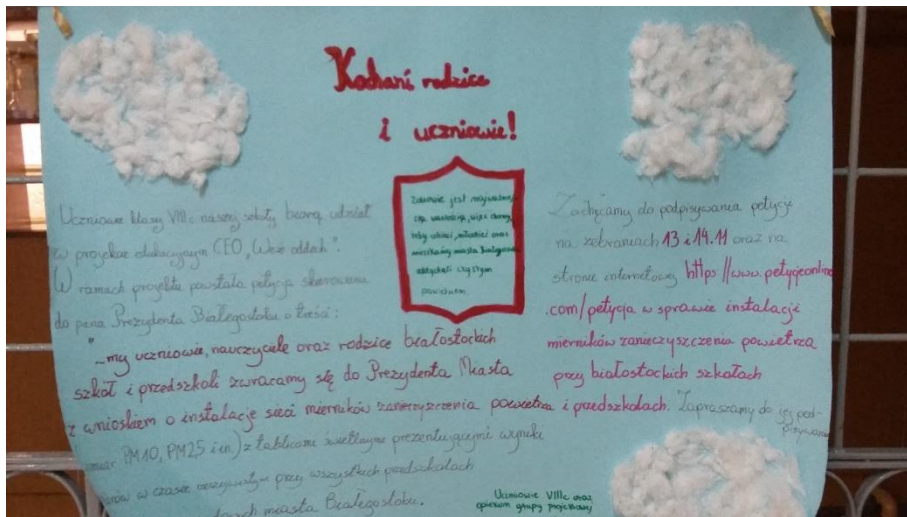 Kochani rodzice
i uczniowie!
Uczniowie klasy VIIIc naszej szkoły biorą udział
w projekcie edukacyjnym CEO „Weź oddech".
W ramach projektu powstała petycja skierowana
do pana Prezydenta Białegostoku o treści:
"...my uczniowie, nauczyciele oraz rodzice białostockich
szkół i przedszkoli zwracamy się do Prezydenta Miasta
z wnioskiem o instalację sieci mierników zanieczyszczenia powietrza
PM10, PM2,5 i in.) z tablicami świetlnymi prezentującymi wyniki
w czasie rzeczywistym przy wszystkich przedszkolach
miasta Białegostoku.
Zdrowie jest najważniej
szą wartością, więc chcemy,
żeby dzieci, młodzież oraz
mieszkańcy miasta Białegostoku
oddychali czystym
powietrzem.
Zachęcamy do podpisywania petycji
na zebraniach 13 i 14.11 oraz na
stronie internetowej https://www.petycjeonline
.com/petycja w sprawie instalacji
mierników zanieczyszczenia powietrza
przy białostockich szkołach
i przedszkolach. Zapraszamy do jej pod-
pisywania
Uczniowie VIIIc oraz
opiekun grupy projektowej